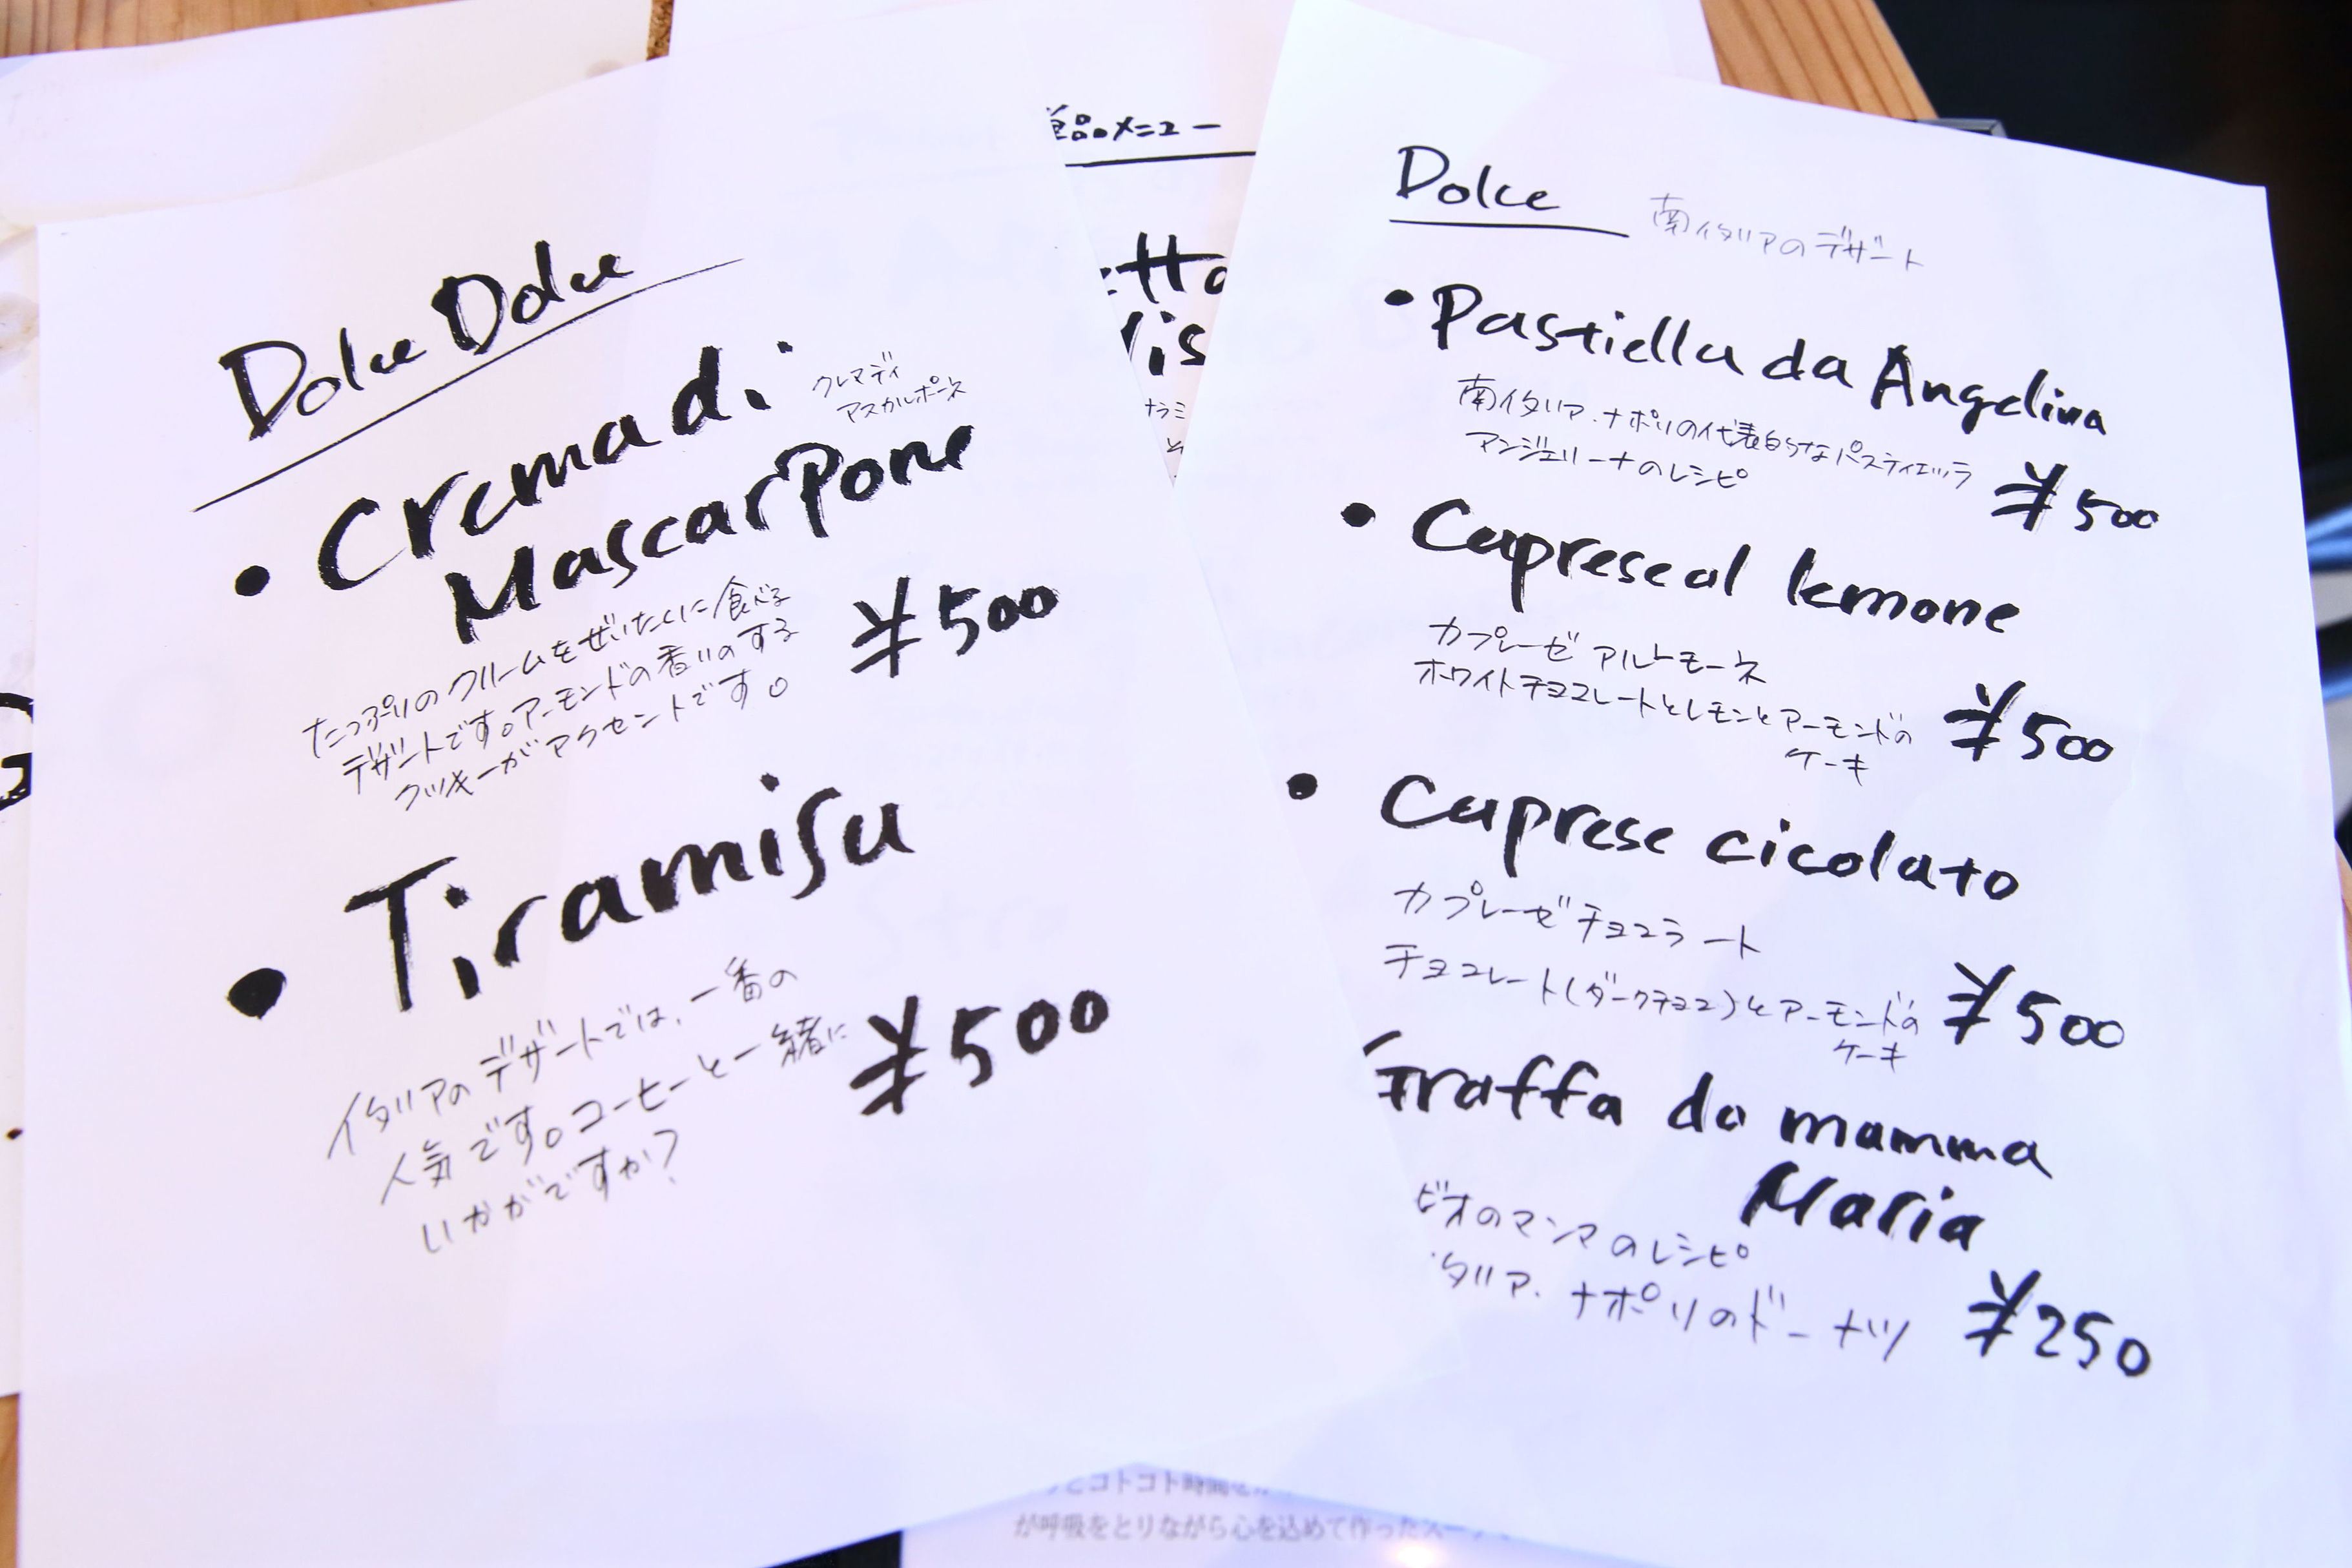 Dolce Dolce
• Crema di
クレマ ディ
マスカルポーネ
Mascarpone
たっぷりのクリームをぜいたくに食べる
デザートです。アーモンドの香りのする
クッキーがアクセントです。
¥500
• Tiramisu
イタリアのデザートでは、一番の
人気です。コーヒーと一緒に
いかがですか?
¥500
品メニュー
tta
is
Dolce 南イタリアのデザート
• Pastiella da Angelina
南イタリア.ナポリの代表的なパスティエッラ
アンジェリーナのレシピ
¥500
• Caprese al lemone
カプレーゼ アルレモーネ
ホワイトチョコレートとレモンとアーモンドの
ケーキ
¥500
• Caprese cicolato
カプレーゼチョコラート
チョコレート(ダークチョコ)とアーモンドの
ケーキ
¥500
Graffa da mamma
Maria
ピオのマンマのレシピ
タリア.ナポリのドーナツ
¥250
コトコト時間を
が呼吸をとりながら心を込めて作ったスープ